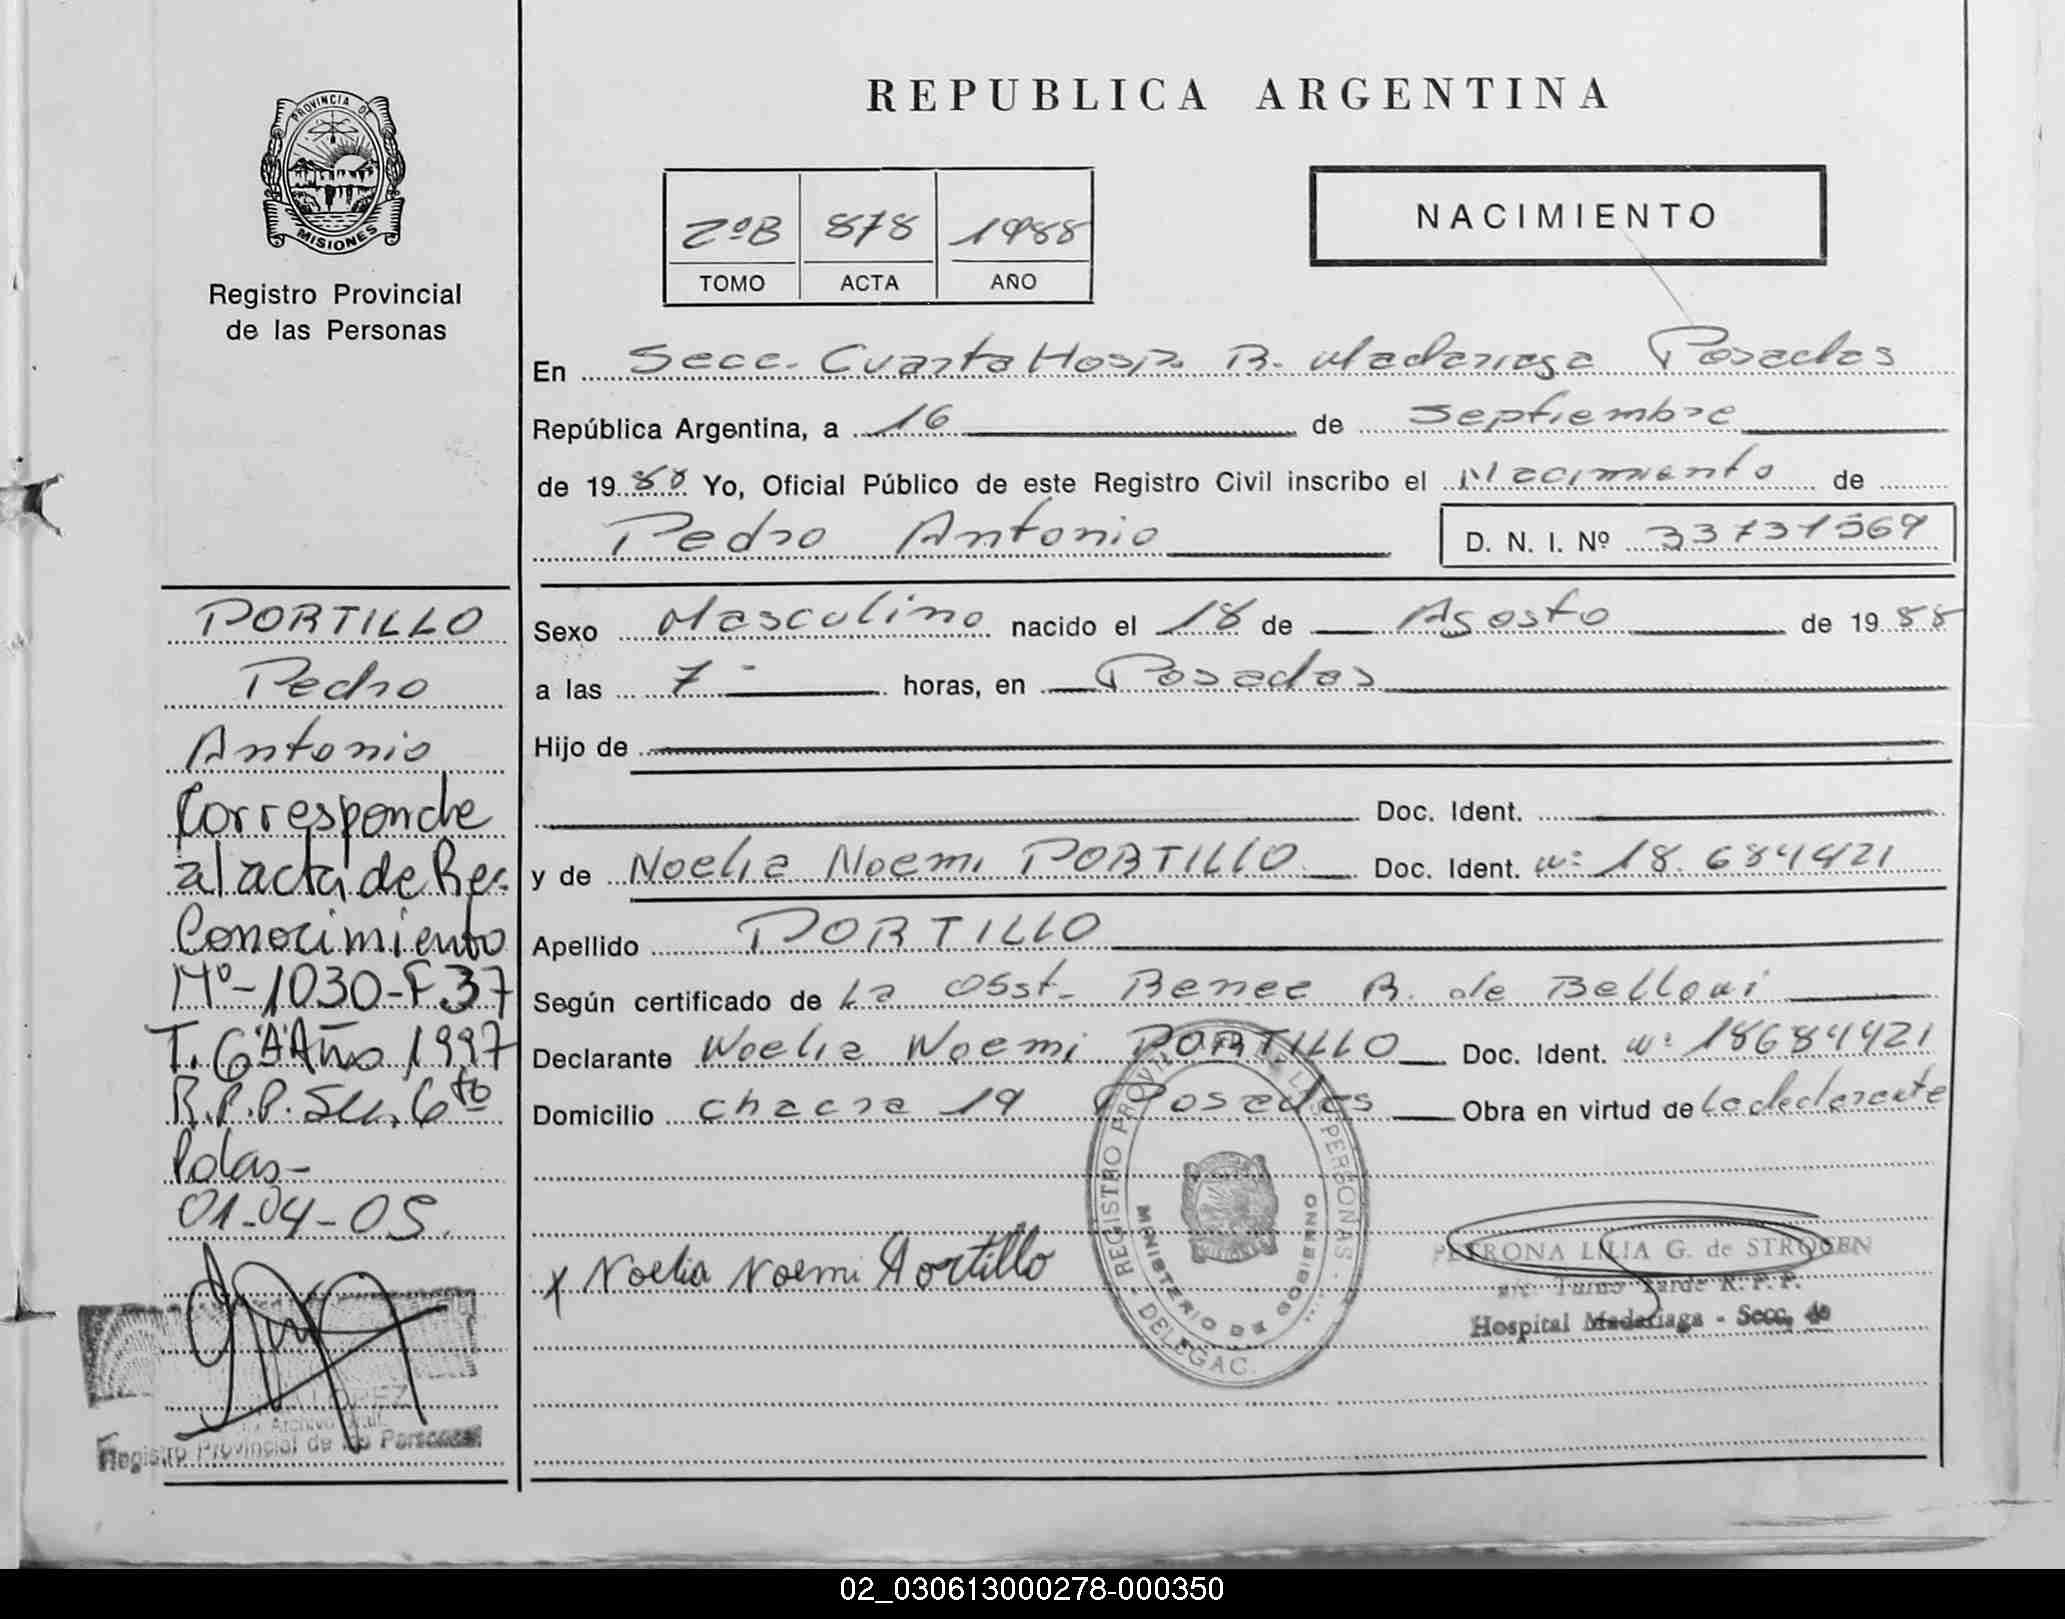 PROVINCIA DE
MISIONES
Registro Provincial
de las Personas
REPUBLICA ARGENTINA
2ºB 878 1988
TOMO ACTA AÑO
NACIMIENTO
En Secc. Cuarta Hosp. R. Madariaga Posadas
República Argentina, a 16 de Septiembre
de 1988 Yo, Oficial Público de este Registro Civil inscribo el Nacimiento de
Pedro Antonio D. N. I. Nº 33731569
Sexo Masculino nacido el 18 de Agosto de 1988
a las 7- horas, en Posadas
Hijo de
Doc. Ident.
y de Noelia Noemi PORTILLO Doc. Ident. nº 18.684421
Apellido PORTILLO
Según certificado de La Obst. Renee R. de Belloni
Declarante Noelia Noemi PORTILLO Doc. Ident. nº 18684421
Domicilio chacra 19 Posadas Obra en virtud de La declarante
x Noelia Noemi Portillo
REGISTRO PROVINCIAL DE LAS PERSONAS
MINISTERIO DE GOBIERNO
DELEGAC.
PETRONA LILIA G. de STROGEN
a/c. Turno Tarde R. P. P.
Hospital Madariaga - Secc. 4o
PORTILLO
Pedro
Antonio
Corresponde
al acta de Re-
Conocimiento
Nº-1030-F.37
T. 6"A" Año 1997
R.P.P. Sec. 6to
Pdas-
01-04-05.
LOPEZ
Archivo
Registro Provincial de las Personas
02_030613000278-000350